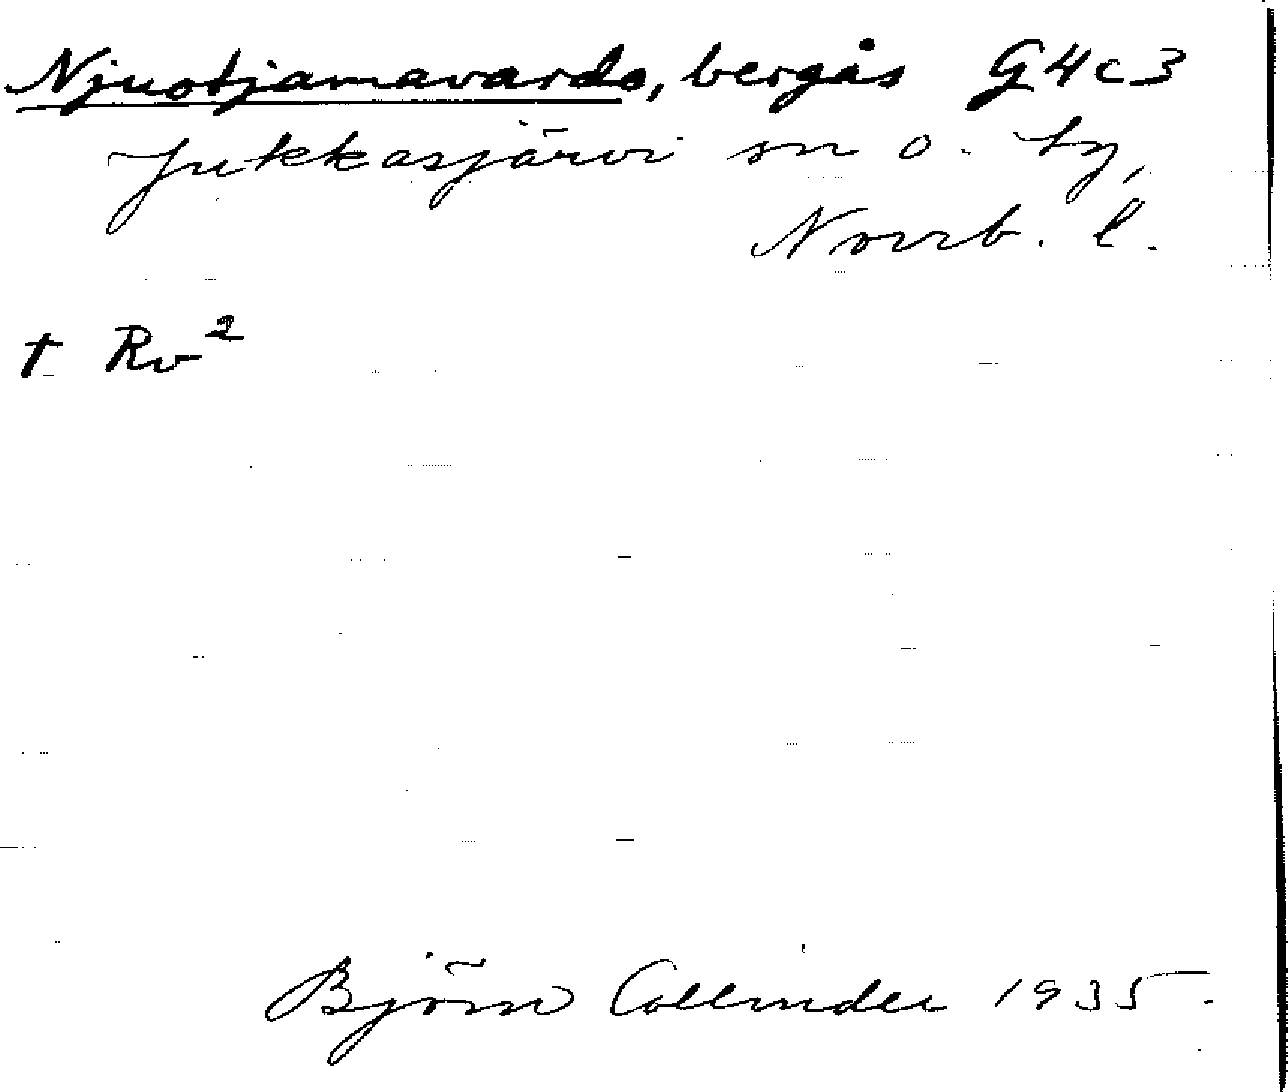 Njuotjamavardo, bergås G4c3
Jukkasjärvi sn o. ty,
Norrb. l.
† Rv²
Björn Collinder 1935.